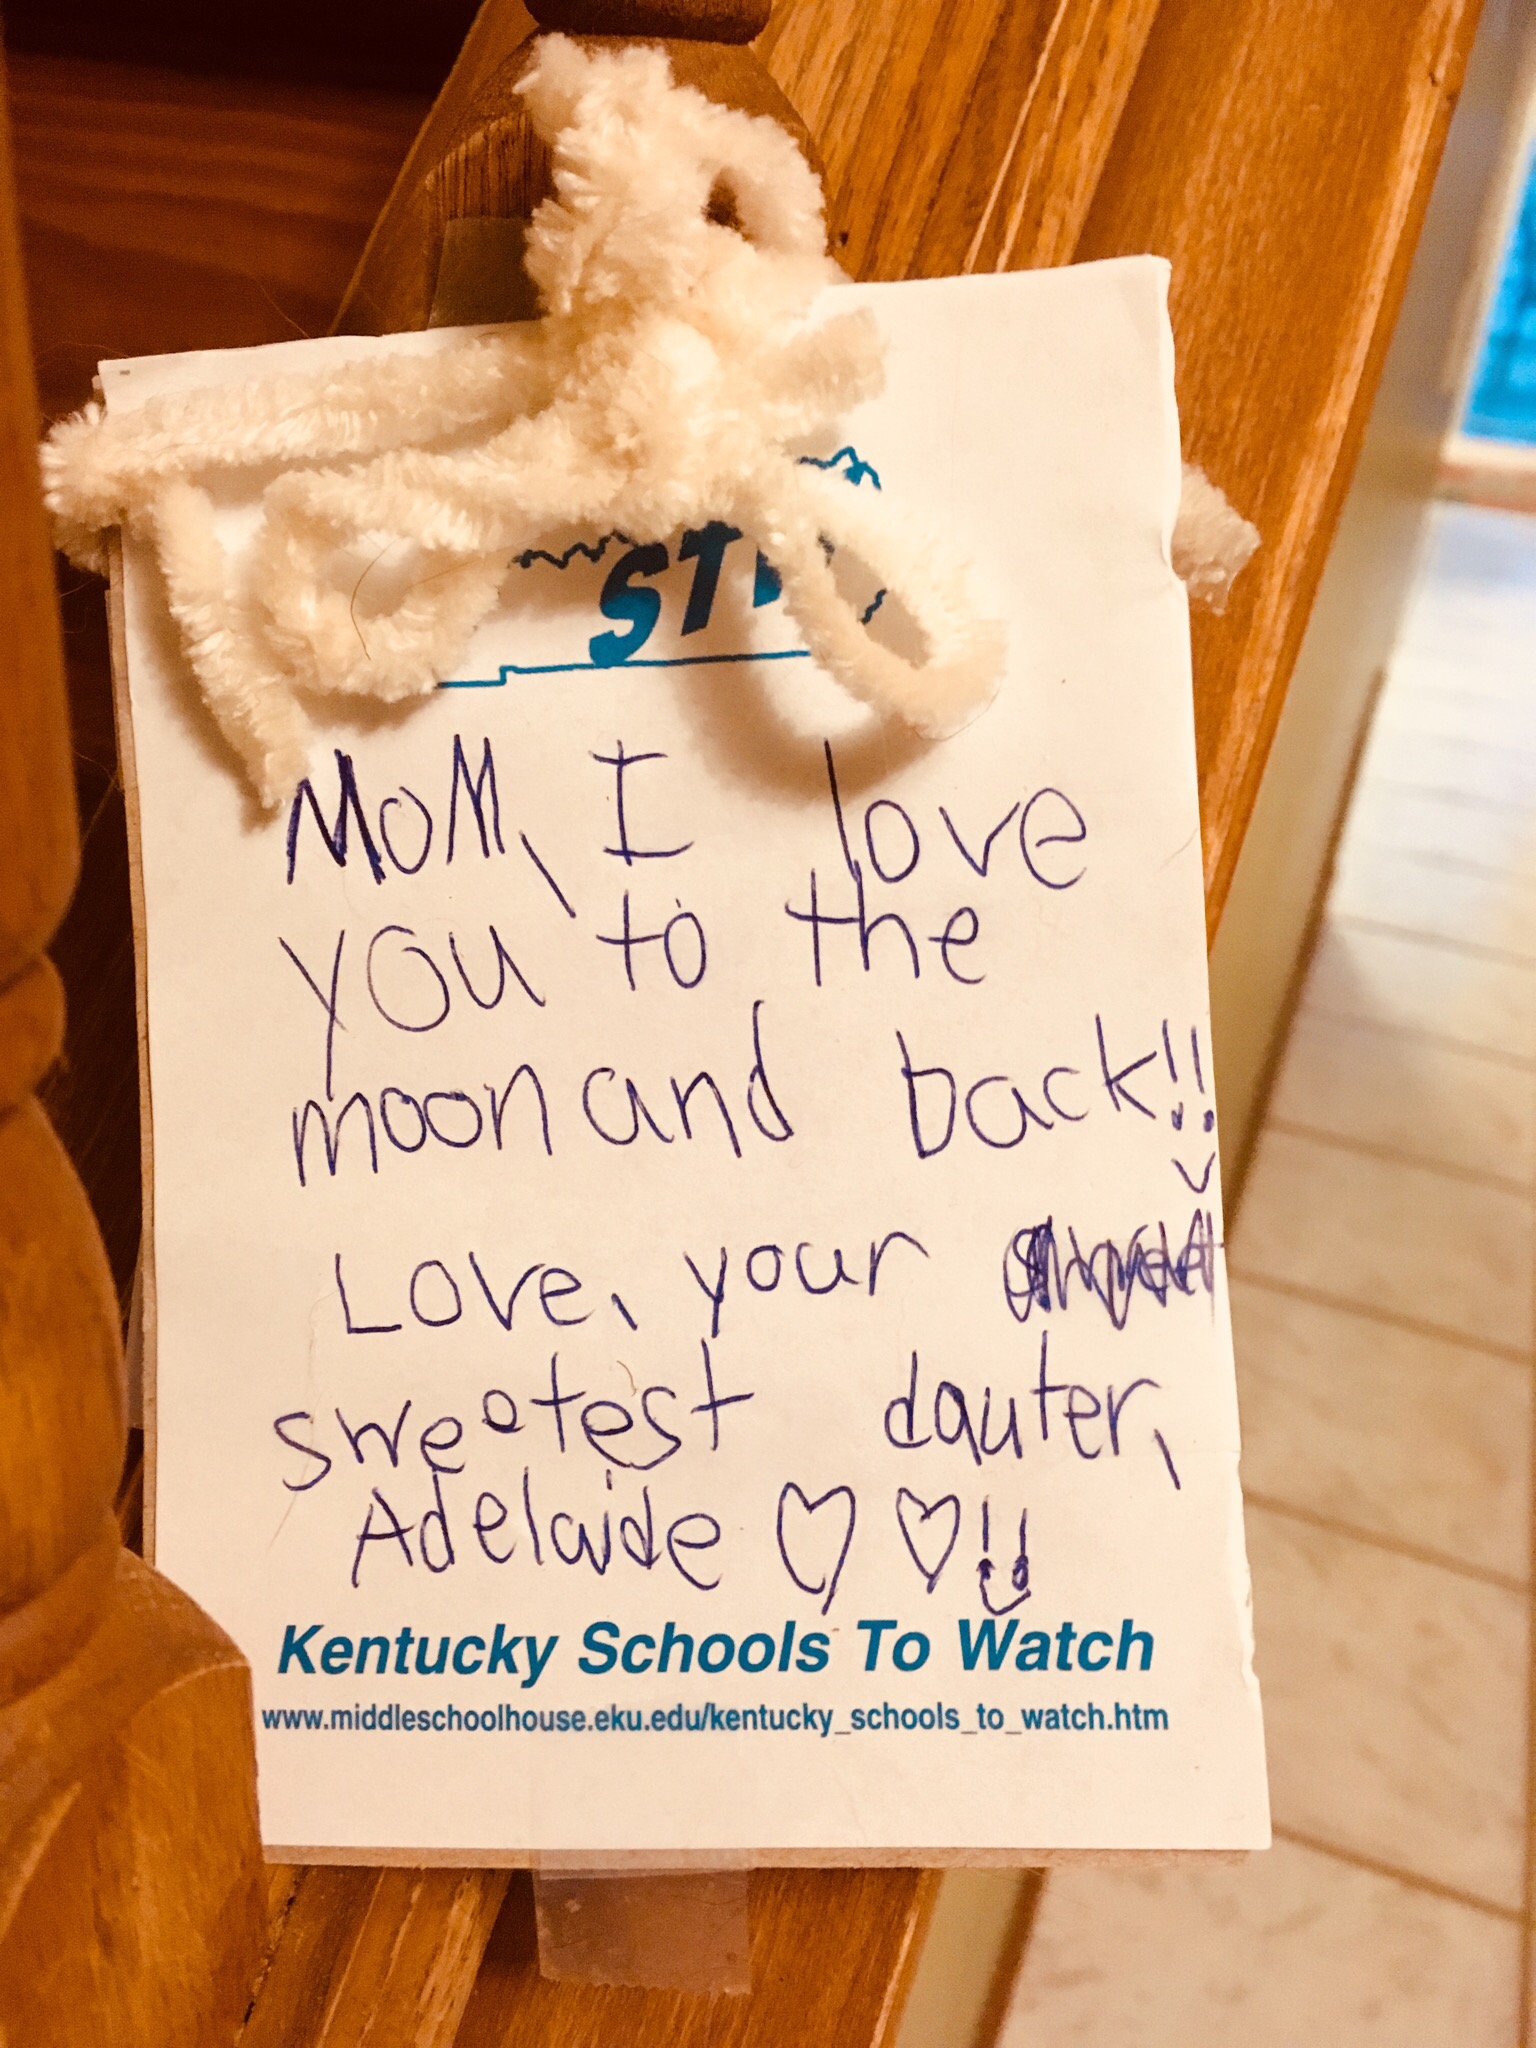 ST
MoM, I love
you to the
moon and back!!
Love, your
sweetest dauter,
Adelaide ♡ ♡!!
Kentucky Schools To Watch
www.middleschoolhouse.eku.edu/kentucky_schools_to_watch.htm